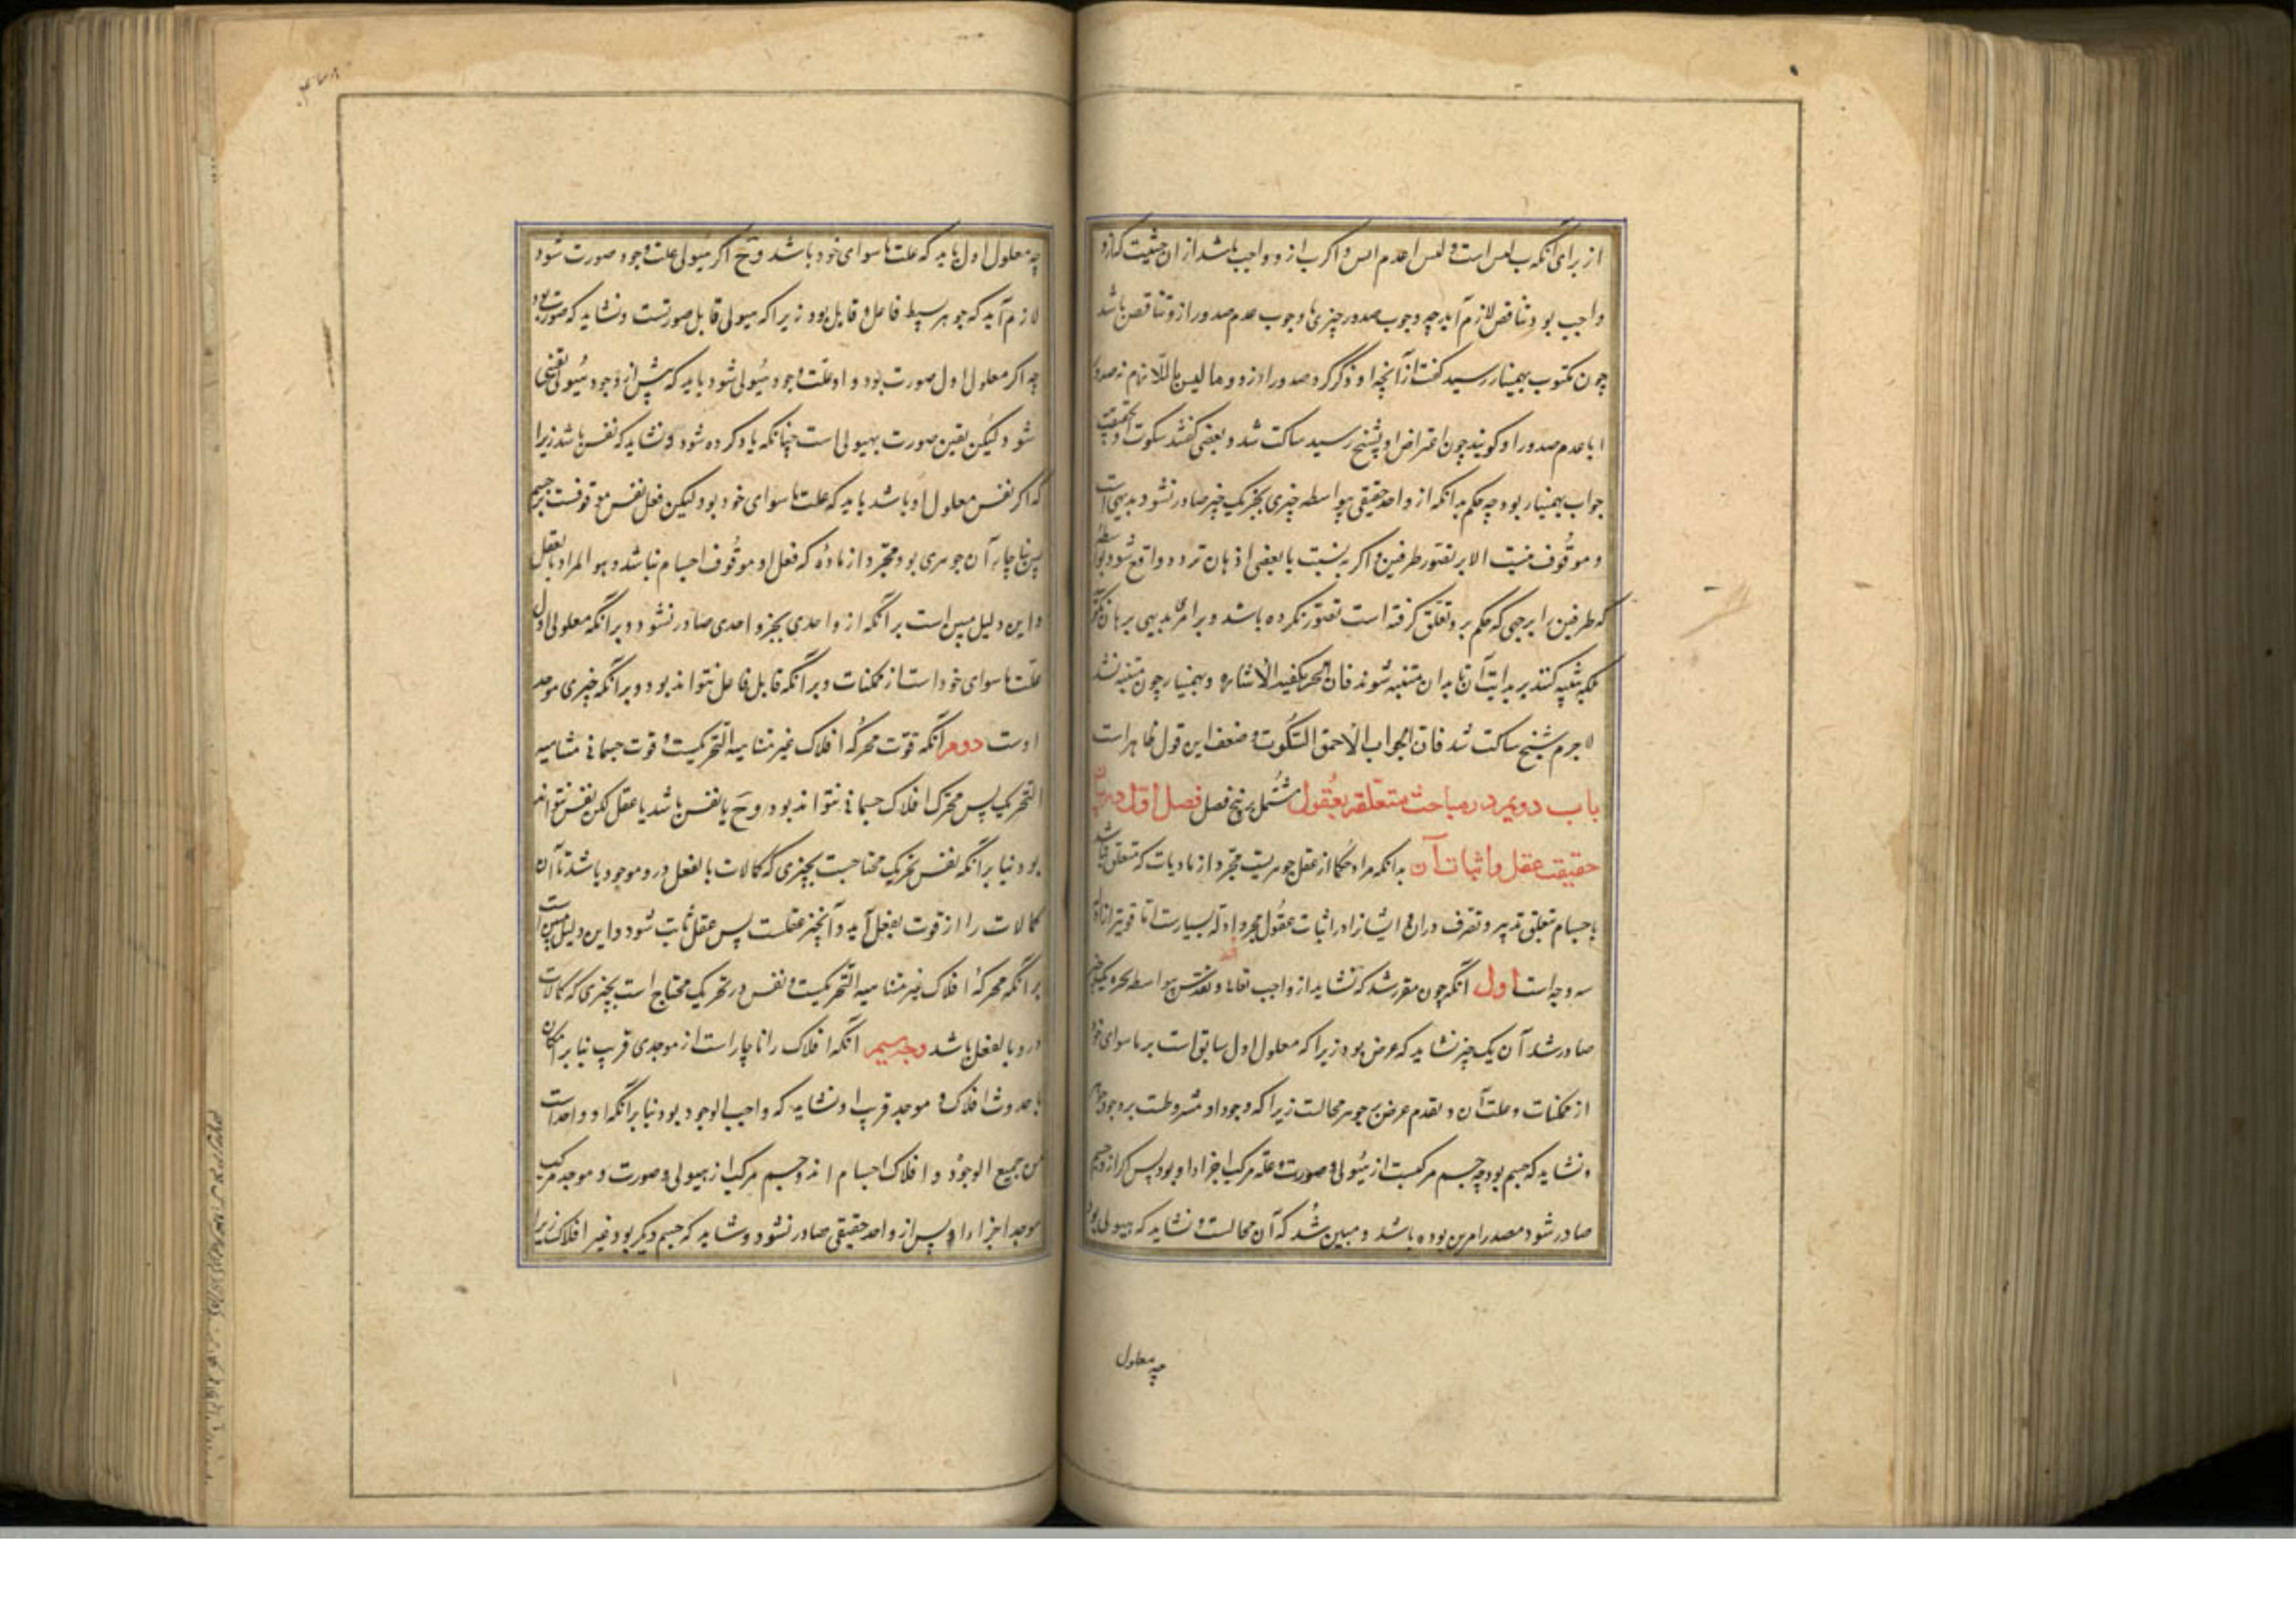 از برای آنکه ب لیس است و لیس ا عدم ایس و اگر ب ازو واجب باشد از ان حیثیت که ازو
واجب بود تناقض لازم آید چه وجوب صدور چیزی با وجوب عدم صدور ازو تناقض باشد
چون مکتوب بهمنیار رسید گفت از آنچه او ذکر کرد صدور ا ازو و ما لیس با اللازم نه صدور
ا با عدم صدور ا و کویند چون اعتراض او بشیخ رسید ساکت شد و بعضی گفتند سکوت در حقیقت
جواب بهمنیار بود چه حکم بدانکه از واحد حقیقی بیواسطه چیزی بجز یک چیز صادر نشود بدیهی است
و موقوف نیست الا بر تصور طرفین و اگر به نسبت با بعضی اذهان تردد واقع شود بواسطه
که طرفین را بر وجهی که حکم برو تعلق گرفته است تصور نکرده باشد و بر امر بدیهی برهان نگویند
بلکه تنبیه کنند بر بداهت آن تا بدان متنبه شوند فان الحر یکفیه الاشاره و بهمنیار چون متنبه نشد
لاجرم شیخ ساکت شد فان الجواب الاحمق السکوت و ضعف این قول ظاهر است
باب دویم در مباحث متعلقه بعقول مشتمل بر پنج فصل فصل اول در بیان
حقیقت عقل و اثبات آن بدانکه مراد حکما از عقل جوهریست مجرد از مادیات که متعلق نباشد
باجسام تعلق تدبیر و تصرف در ان و ایشانرا در اثبات عقول مجرد ادله بسیارست اما قویتر از ان
سه وجه است اول آنکه چون مقرر شد که نشاید از واجب تعالی و تقدس بیواسطه بجز یک چیز
صادر شد آن یک چیز نشاید که عرض بود زیرا که معلول اول سابق است بر ماسوای خود
از ممکنات و علت آن و تقدم عرض بر جوهر محالست زیرا که وجود او مشروطست بر وجود جوهر
و نشاید که جسم بود چه جسم مرکبست از هیولی و صورت و علة مرکب اجزاء او بود پس اگر ازو جسم
صادر شود مصدر امرین بوده باشد و مبین شد که آن محالست و نشاید که هیولی بود
چه معلول
چه معلول اول باید که علت ماسوای خود باشد و ح اگر هیولی علت وجود صورت شود
لازم آید که جوهر بسیط فاعل و قابل بود زیرا که هیولی قابل صورتست و نشاید که صورت بود
چه اگر معلول اول صورت بود و او علت وجود هیولی شود باید که پیش از وجود هیولی متعین
شود لیکن تعین صورت بهیولی است چنانکه یاد کرده شود و نشاید که نفس باشد زیرا
که اگر نفس معلول او باشد باید که علت ماسوای خود بود لیکن فعل نفس موقوفست بر جسم
پس ناچار آن جوهری بود مجرد از ماده که فعل او موقوف اجسام نباشد و هو المراد بالعقل
و این دلیل مبین است بر آنکه از واحدی بجز واحدی صادر نشود و بر آنکه معلول اول
علت ماسوای خود است از ممکنات و بر آنکه قابل فاعل نتواند بود و بر آنکه چیزی موجد
اوست دوم آنکه قوت محرکه افلاک غیر متناهیه التحریکست و قوت جسمانی متناهیه
التحریک پس محرک افلاک جسمانی نتواند بود و ح یا نفس باشد یا عقل لکن نفس نتواند
بود بنا بر آنکه نفس بتحریک محتاجست بچیزی که کمالات بالفعل درو موجود باشد تا آن
کمالات را از قوت بفعل آید و آنچیز عقلست پس عقل ثابت شود و این دلیل مبین است
بر آنکه محرکه افلاک غیر متناهیه التحریکست و نفس در تحریک محتاج است بچیزی که کمالات
درو بالفعل باشد وجه سیم آنکه افلاک را ناچار است از موجدی قریب بنا بر امکان
یا حدوث افلاک و موجد قریب او نشاید که واجب الوجود بود بنا بر آنکه او واحد است
من جمیع الوجوه و افلاک اجسام اند و جسم مرکب از هیولی و صورت و موجد مرکب
موجد اجزاء او پس از واحد حقیقی صادر نشود و نشاید که جسم دیگر بود غیر افلاک زیرا